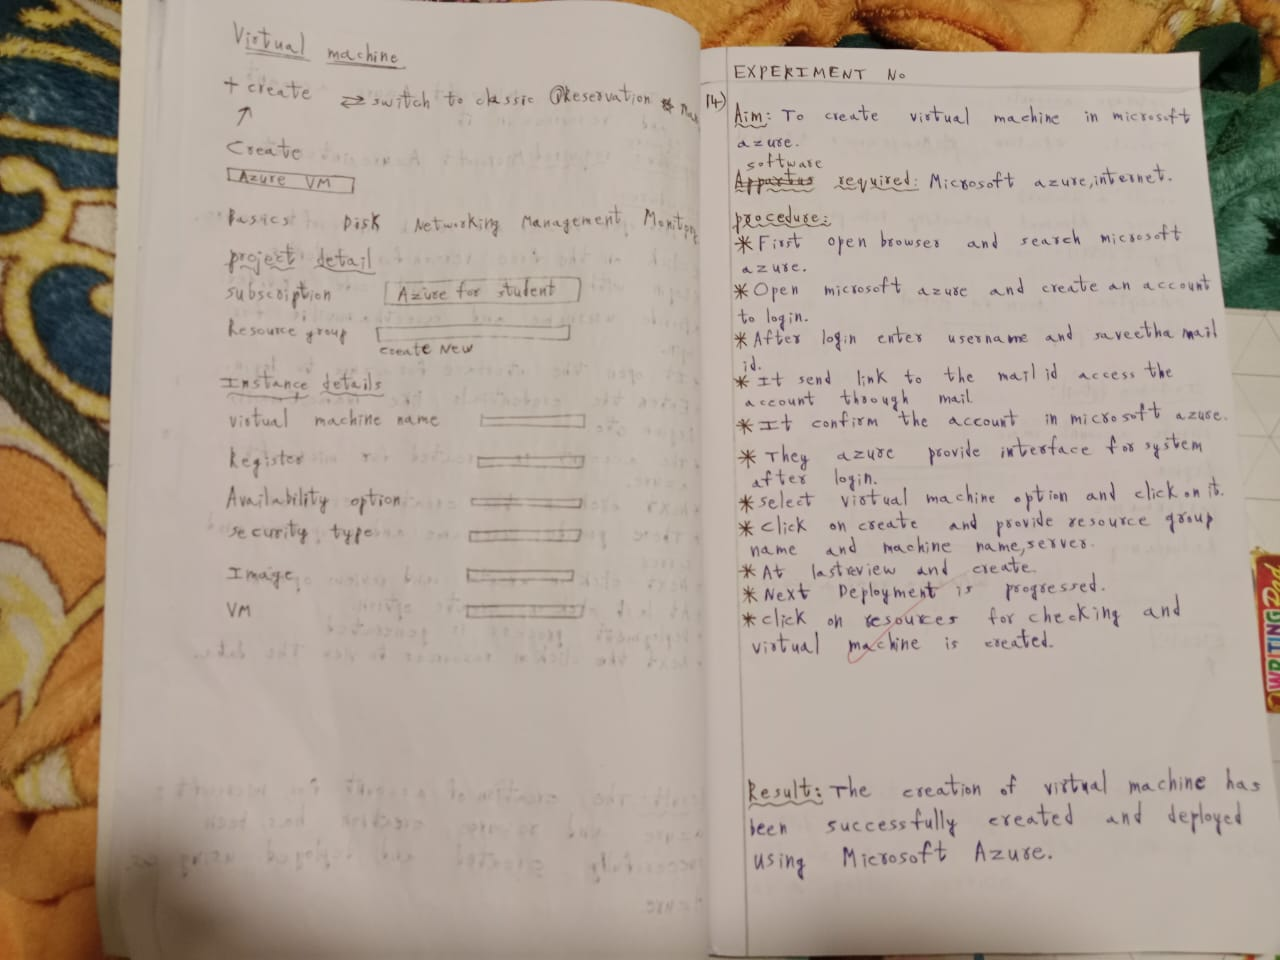 Virtual machine
+ create ⇄ switch to classic @Reservation
↑
Create
Azure VM
Basics Disk Networking Management Monitoring
project detail
subscription Azure for student
Resource group
create New
Instance details
virtual machine name
Register
Availability option
security type
Image
VM
EXPERIMENT No
14)
Aim: To create virtual machine in microsoft
azure.
software
Appartus required: Microsoft azure, internet.
procedure:
* First open browser and search microsoft
azure.
* Open microsoft azure and create an account
to login.
* After login enter username and saveetha mail
id.
* It send link to the mail id access the
account through mail
* It confirm the account in microsoft azure.
* They azure provide interface for system
after login.
* select virtual machine option and click on it.
* click on create and provide resource group
name and machine name, server.
* At last review and create.
* Next Deployment is progressed.
* click on resources for checking and
virtual machine is created.
Result: The creation of virtual machine has
been successfully created and deployed
using Microsoft Azure.
WRITING